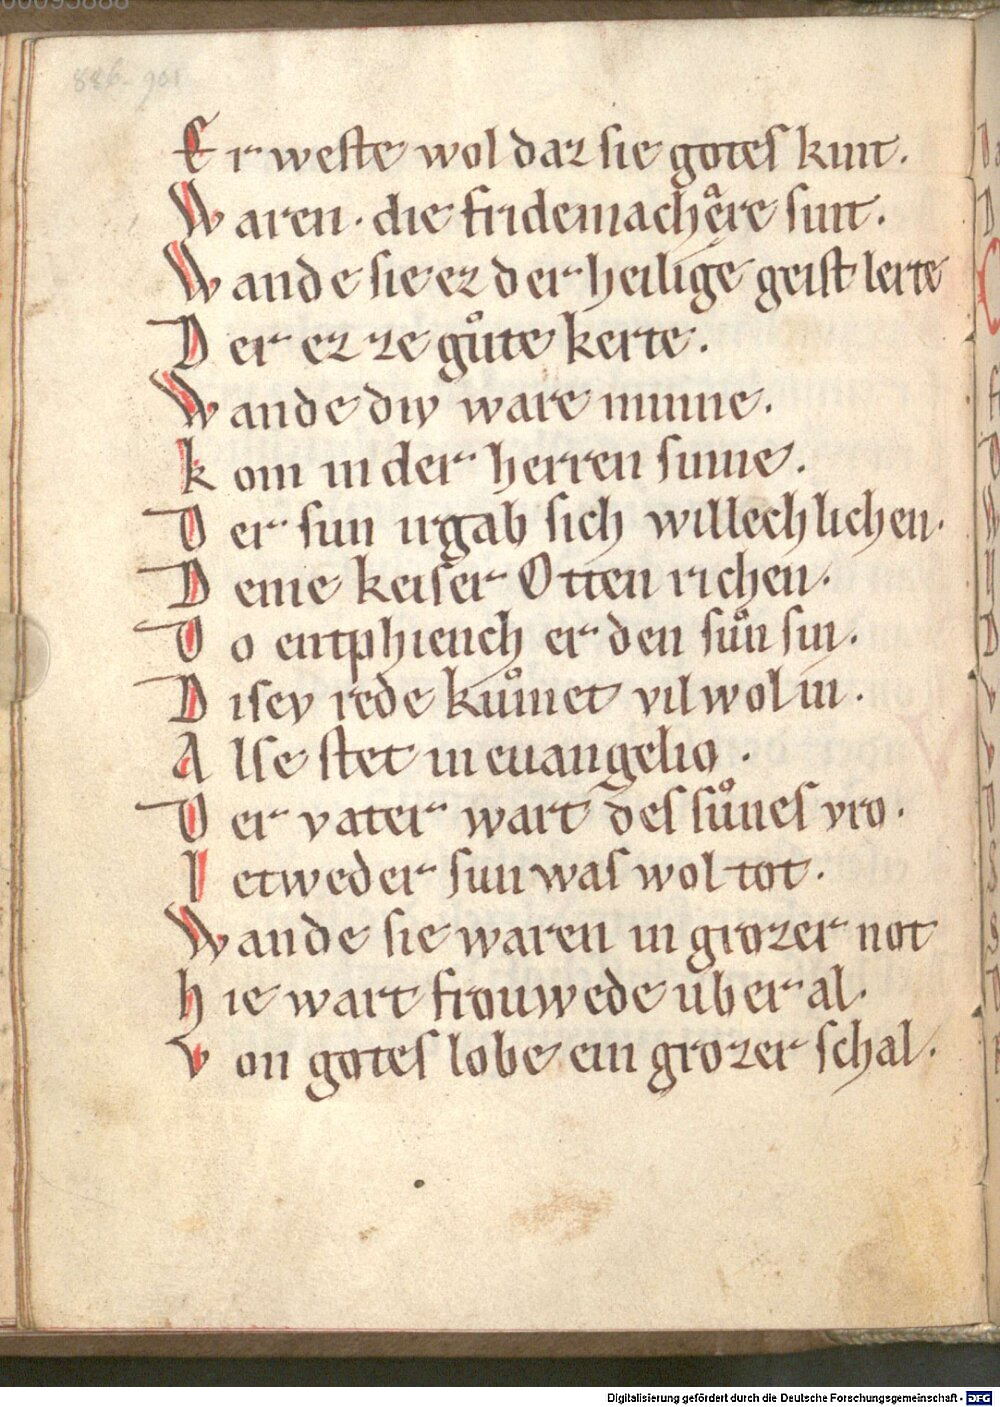 886-901
Er weste wol daz sie gotes kint.
Waren. die fridemachęre sint.
Wande sie ez der heilige geist lerte
Der ez ze gůte kerte.
Wande div ware minne.
kom in der herren sinne.
Der sun irgab sich willechlichen.
Deme keiser Otten richen.
Do entphiench er den sůn sin.
Disev rede kuͦmet vil wol in.
Alse stet in euangelio.
Der vater wart des sůnes vro.
Ietweder sun was wol tot.
Wande sie waren in grozer not
hie wart frouwede uber al.
von gotes lobe ein grozer schal.
Digitalisierung gefördert durch die Deutsche Forschungsgemeinschaft - DFG